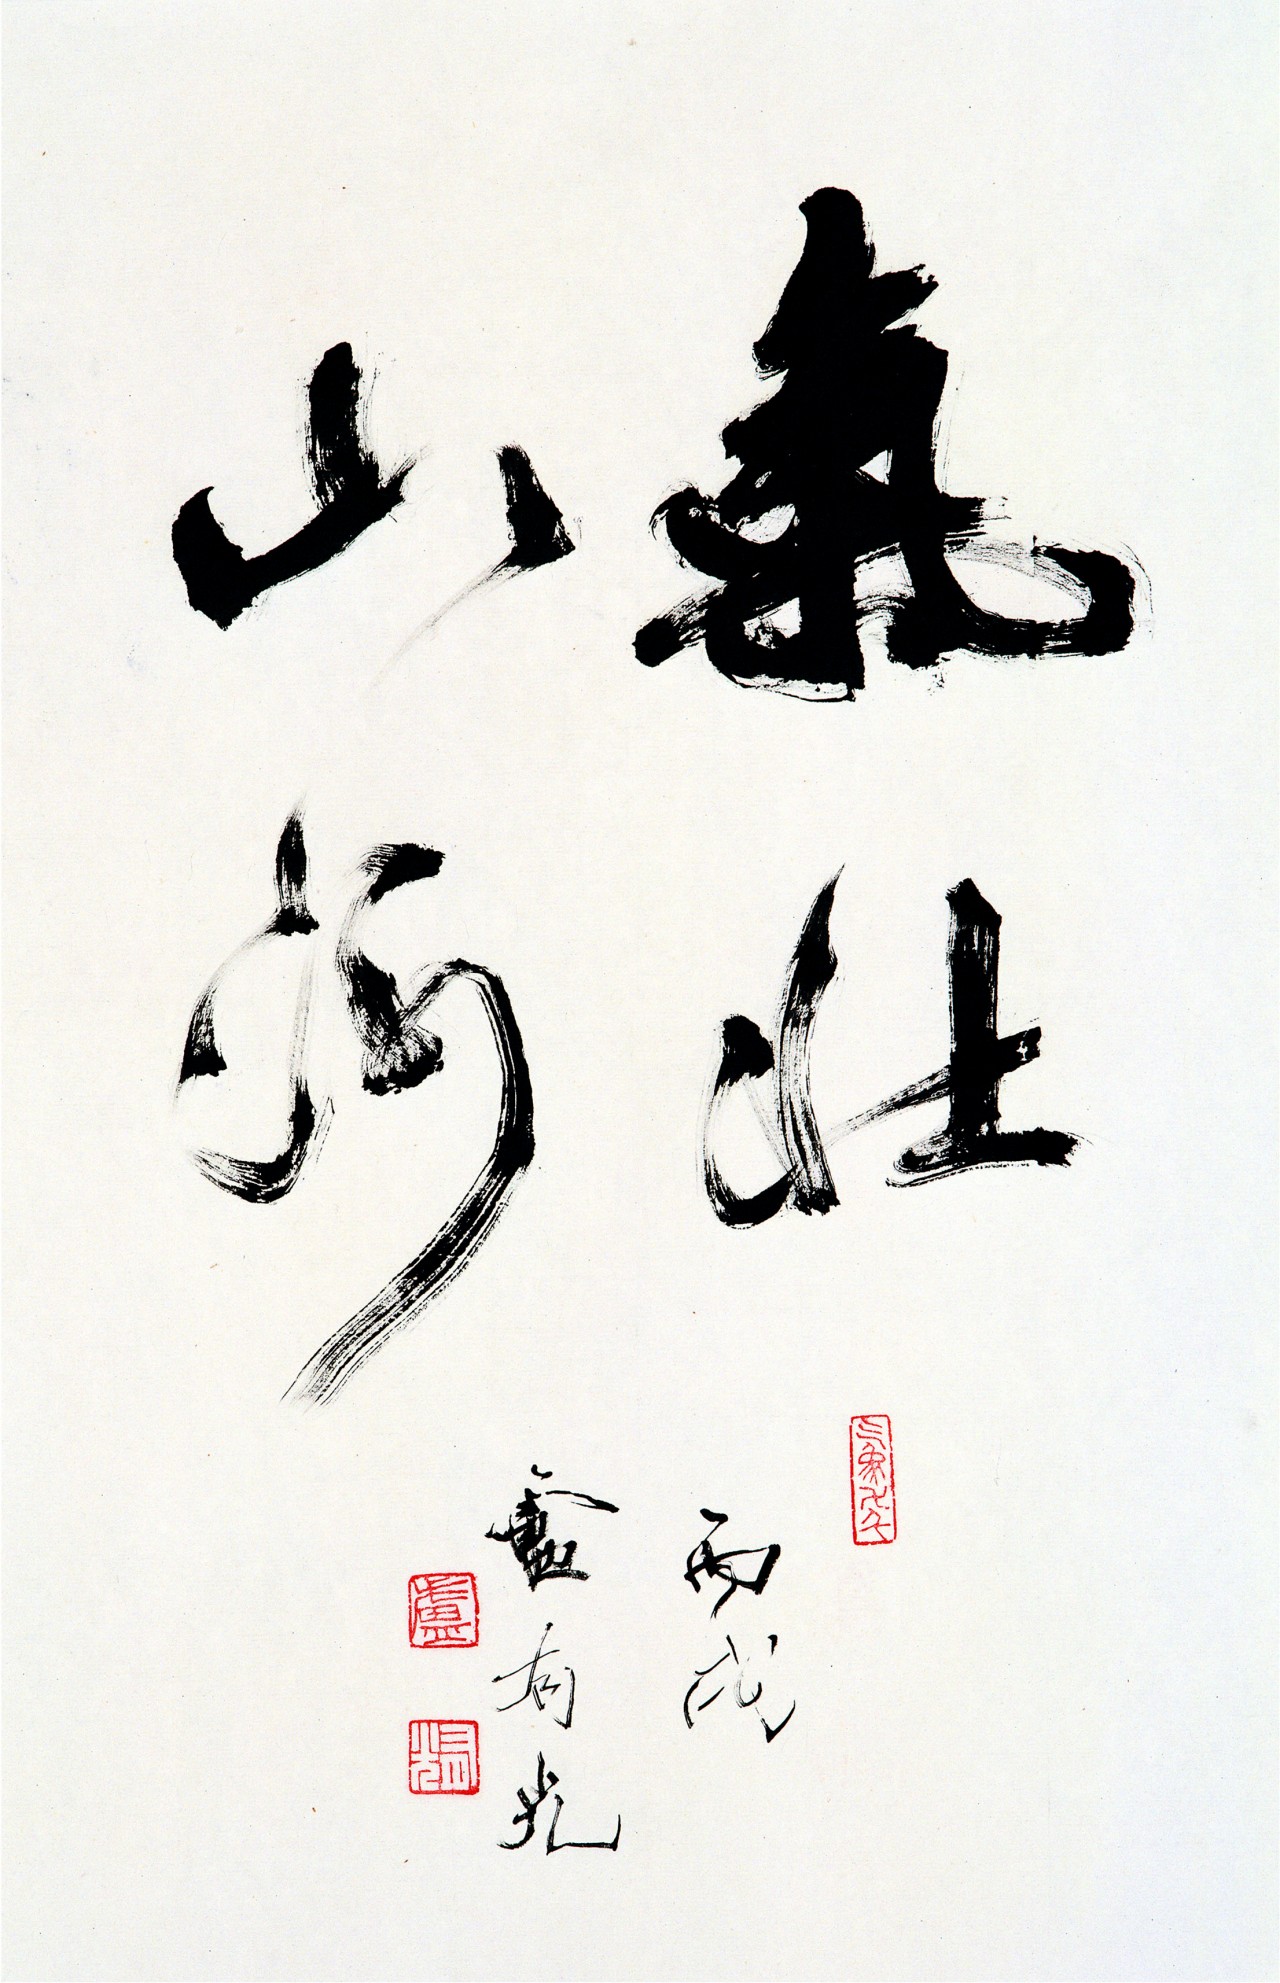 氣壯
山河
丙戌
盧有光
盧
有光